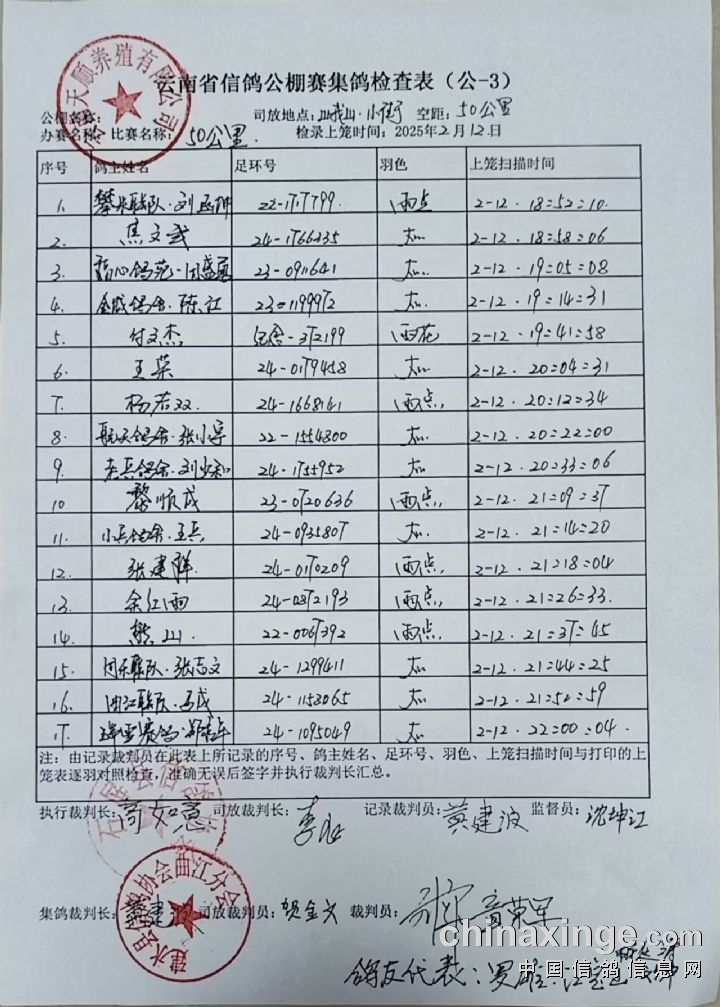 云南省信鸽公棚赛集鸽检查表（公-3）
天顺养殖有限公司
公棚名称： 司放地点：峨山·小街 空距：50公里
办赛名称： 比赛名称：50公里 检录上笼时间：2025年2月12日
序号 鸽主姓名 足环号 羽色 上笼扫描时间
1. 攀 联队·刘 22-1717799 雨点 2-12·18:52:10
2. 焦文武 24-1766335 灰 2-12·18:58:06
3. 23-0911641 灰 2-12·19:05:08
4. 金成鸽舍·陈江 23-1199972 灰 2-12·19:14:31
5. 付文杰 -372199 雨花 2-12·19:41:58
6. 王荣 24-0179458 灰 2-12·20:04:31
7. 杨若双 24-1668141 雨点 2-12·20:12:34
8. 航天鸽舍·张小 22-1554300 灰 2-12·20:22:00
9. 老兵鸽舍·刘少和 24-1755952 灰 2-12·20:33:06
10 黎顺成 23-0720636 雨点 2-12·21:09:37
11. 小兵鸽舍·王兵 24-0935807 灰 2-12·21:14:20
12. 张建群 24-0170209 雨点 2-12·21:18:04
13. 余红雨 24-0372193 雨点 2-12·21:26:33
14. 熊山 22-0067392 雨点 2-12·21:37:45
15. 联队·张志文 24-1299411 灰 2-12·21:44:25
16. 曲江联队·马成 24-1153065 灰 2-12·21:52:59
17. 赛鸽· 24-1095049 灰 2-12·22:00:04
注：由记录裁判员在此表上所记录的序号、鸽主姓名、足环号、羽色、上笼扫描时间与打印的上
笼表逐羽对照检查，准确无误后签字并执行裁判长汇总。
执行裁判长：高如意 司放裁判长：李 记录裁判员：黄建波 监督员：沈坤江
建水县 协会曲江分会
集鸽裁判长：黄建波 司放裁判员：贺金文 裁判员： 章荣军
鸽友代表：罗雄
chinaxinge.com
中国信鸽信息网